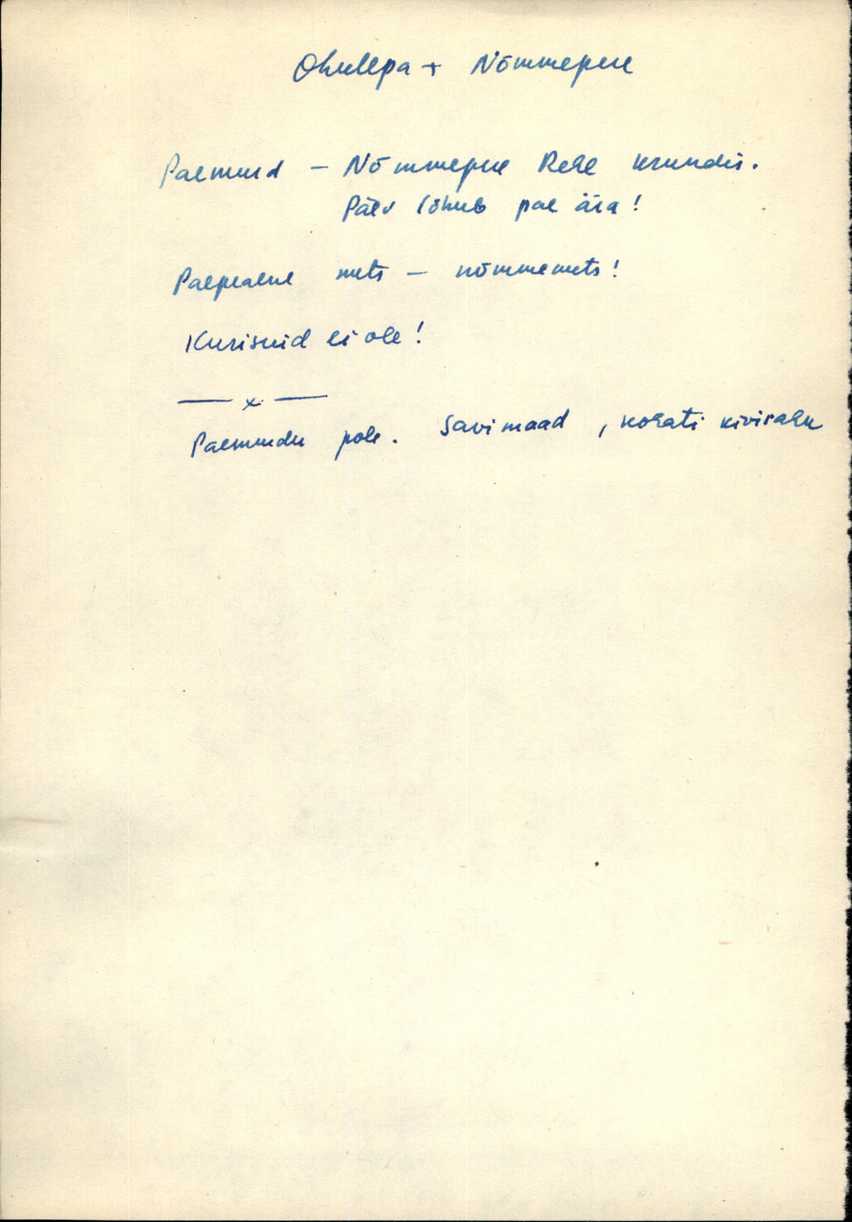 Ohulepa + Nõmmepere
Paemurd – Nõmmepere Rehe krundis.
Päev lõhub pae ära!
Paepealne mets – nõmmemets!
Kurisuid ei ole!
— x —
Paemurdu pole. Savimaad, kohati kivisalu